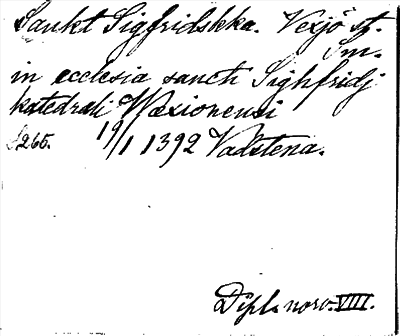 Sankt Sigfridskka. Vexjö st.
Sm.
in ecclesia sancti Sighfridj
katedrali Wexionensi
S 265. 19/1 1392 Vadstena.
Dipl. norv. VIII.